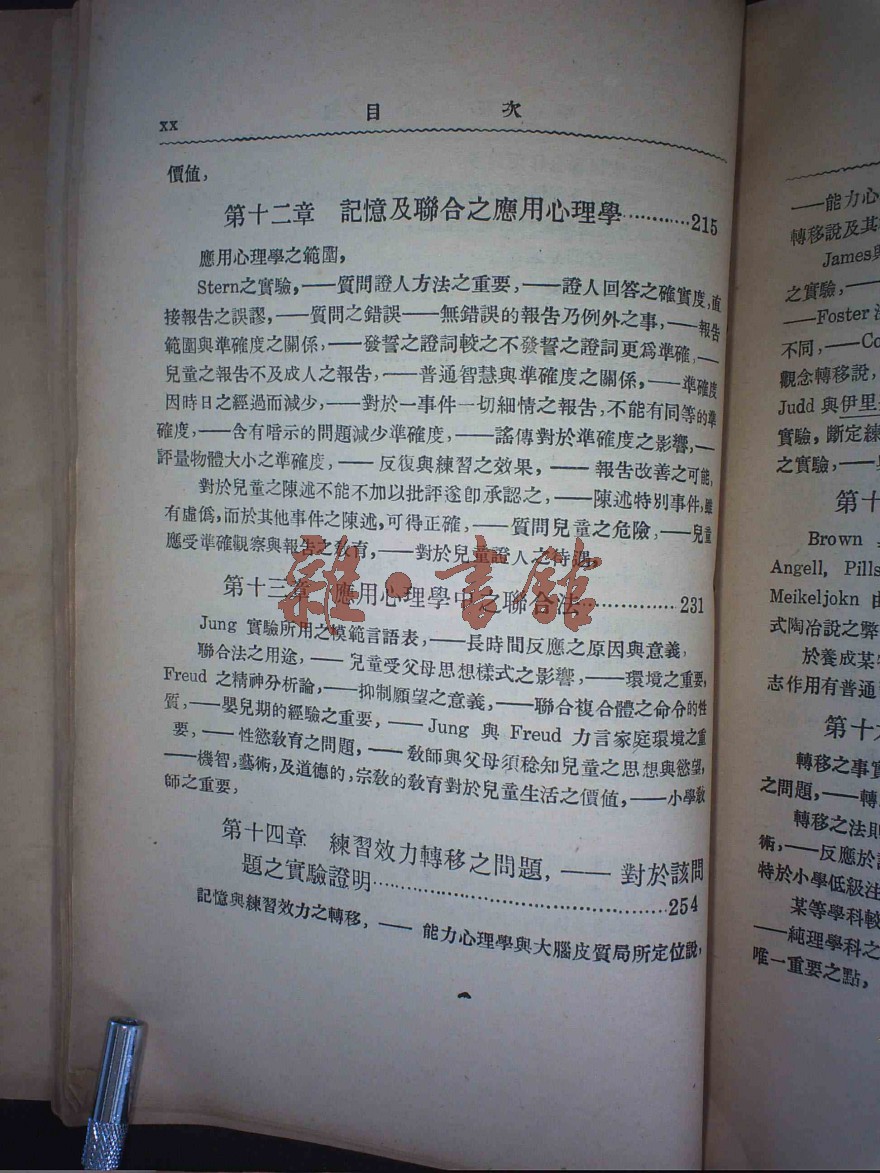 xx 目 次
價值,
第十二章 記憶及聯合之應用心理學…………215
應用心理學之範圍,
Stern之實驗,——質問證人方法之重要,——證人回答之確實度,直
接報告之誤謬,——質問之錯誤——無錯誤的報告乃例外之事,——報告
範圍與準確度之關係,——發誓之證詞較之不發誓之證詞更爲準確,——
兒童之報告不及成人之報告,——普通智慧與準確度之關係,——準確度
因時日之經過而減少,——對於一事件一切細情之報告,不能有同等的準
確度,——含有暗示的問題減少準確度,——謠傳對於準確度之影響,——
評量物體大小之準確度,——反復與練習之效果,——報告改善之可能,
對於兒童之陳述不能不加以批評遂卽承認之,——陳述特別事件,雖
有虛僞,而於其他事件之陳述,可得正確,——質問兒童之危險,——兒童
應受準確觀察與報告之敎育,——對於兒童證人之待遇,
第十三章 應用心理學中之聯合法……………231
Jung 實驗所用之模範言語表,——長時間反應之原因與意義,
聯合法之用途,——兒童受父母思想樣式之影響,——環境之重要,
Freud 之精神分析論,——抑制願望之意義,——聯合複合體之命令的性
質,——嬰兒期的經驗之重要,——Jung 與 Freud 力言家庭環境之重
要,——性慾敎育之問題,——敎師與父母須稔知兒童之思想與慾望,
——機智,藝術,及道德的,宗敎的敎育對於兒童生活之價值,——小學敎
師之重要,
第十四章 練習效力轉移之問題,——對於該問
題之實驗證明……………………………254
記憶與練習效力之轉移,——能力心理學與大腦皮質局所定位說,
雜·書館
——能力心
轉移說及其
James與
之實驗,——
——Foster
不同,——Co
觀念轉移說,
Judd 與伊里
實驗,斷定練
之實驗,——
第十
Brown
Angell, Pills
Meikeljokn 由
式陶冶說之弊
於養成某
志作用有普通
第十六
轉移之事實
之問題,——轉
轉移之法則
術,——反應於
特於小學低級注
某等學科較
——純理學科之
唯一重要之點,